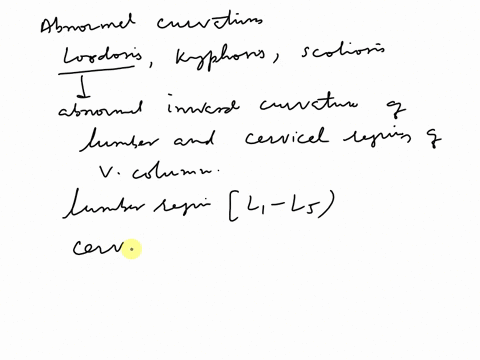 Abnormel curvatures
Lordosis, kyphosis, scoliosis
abnormal inward curvature of
lumber and cervicel regions of
v. column.
lumber regin [L1-L5)
cerv